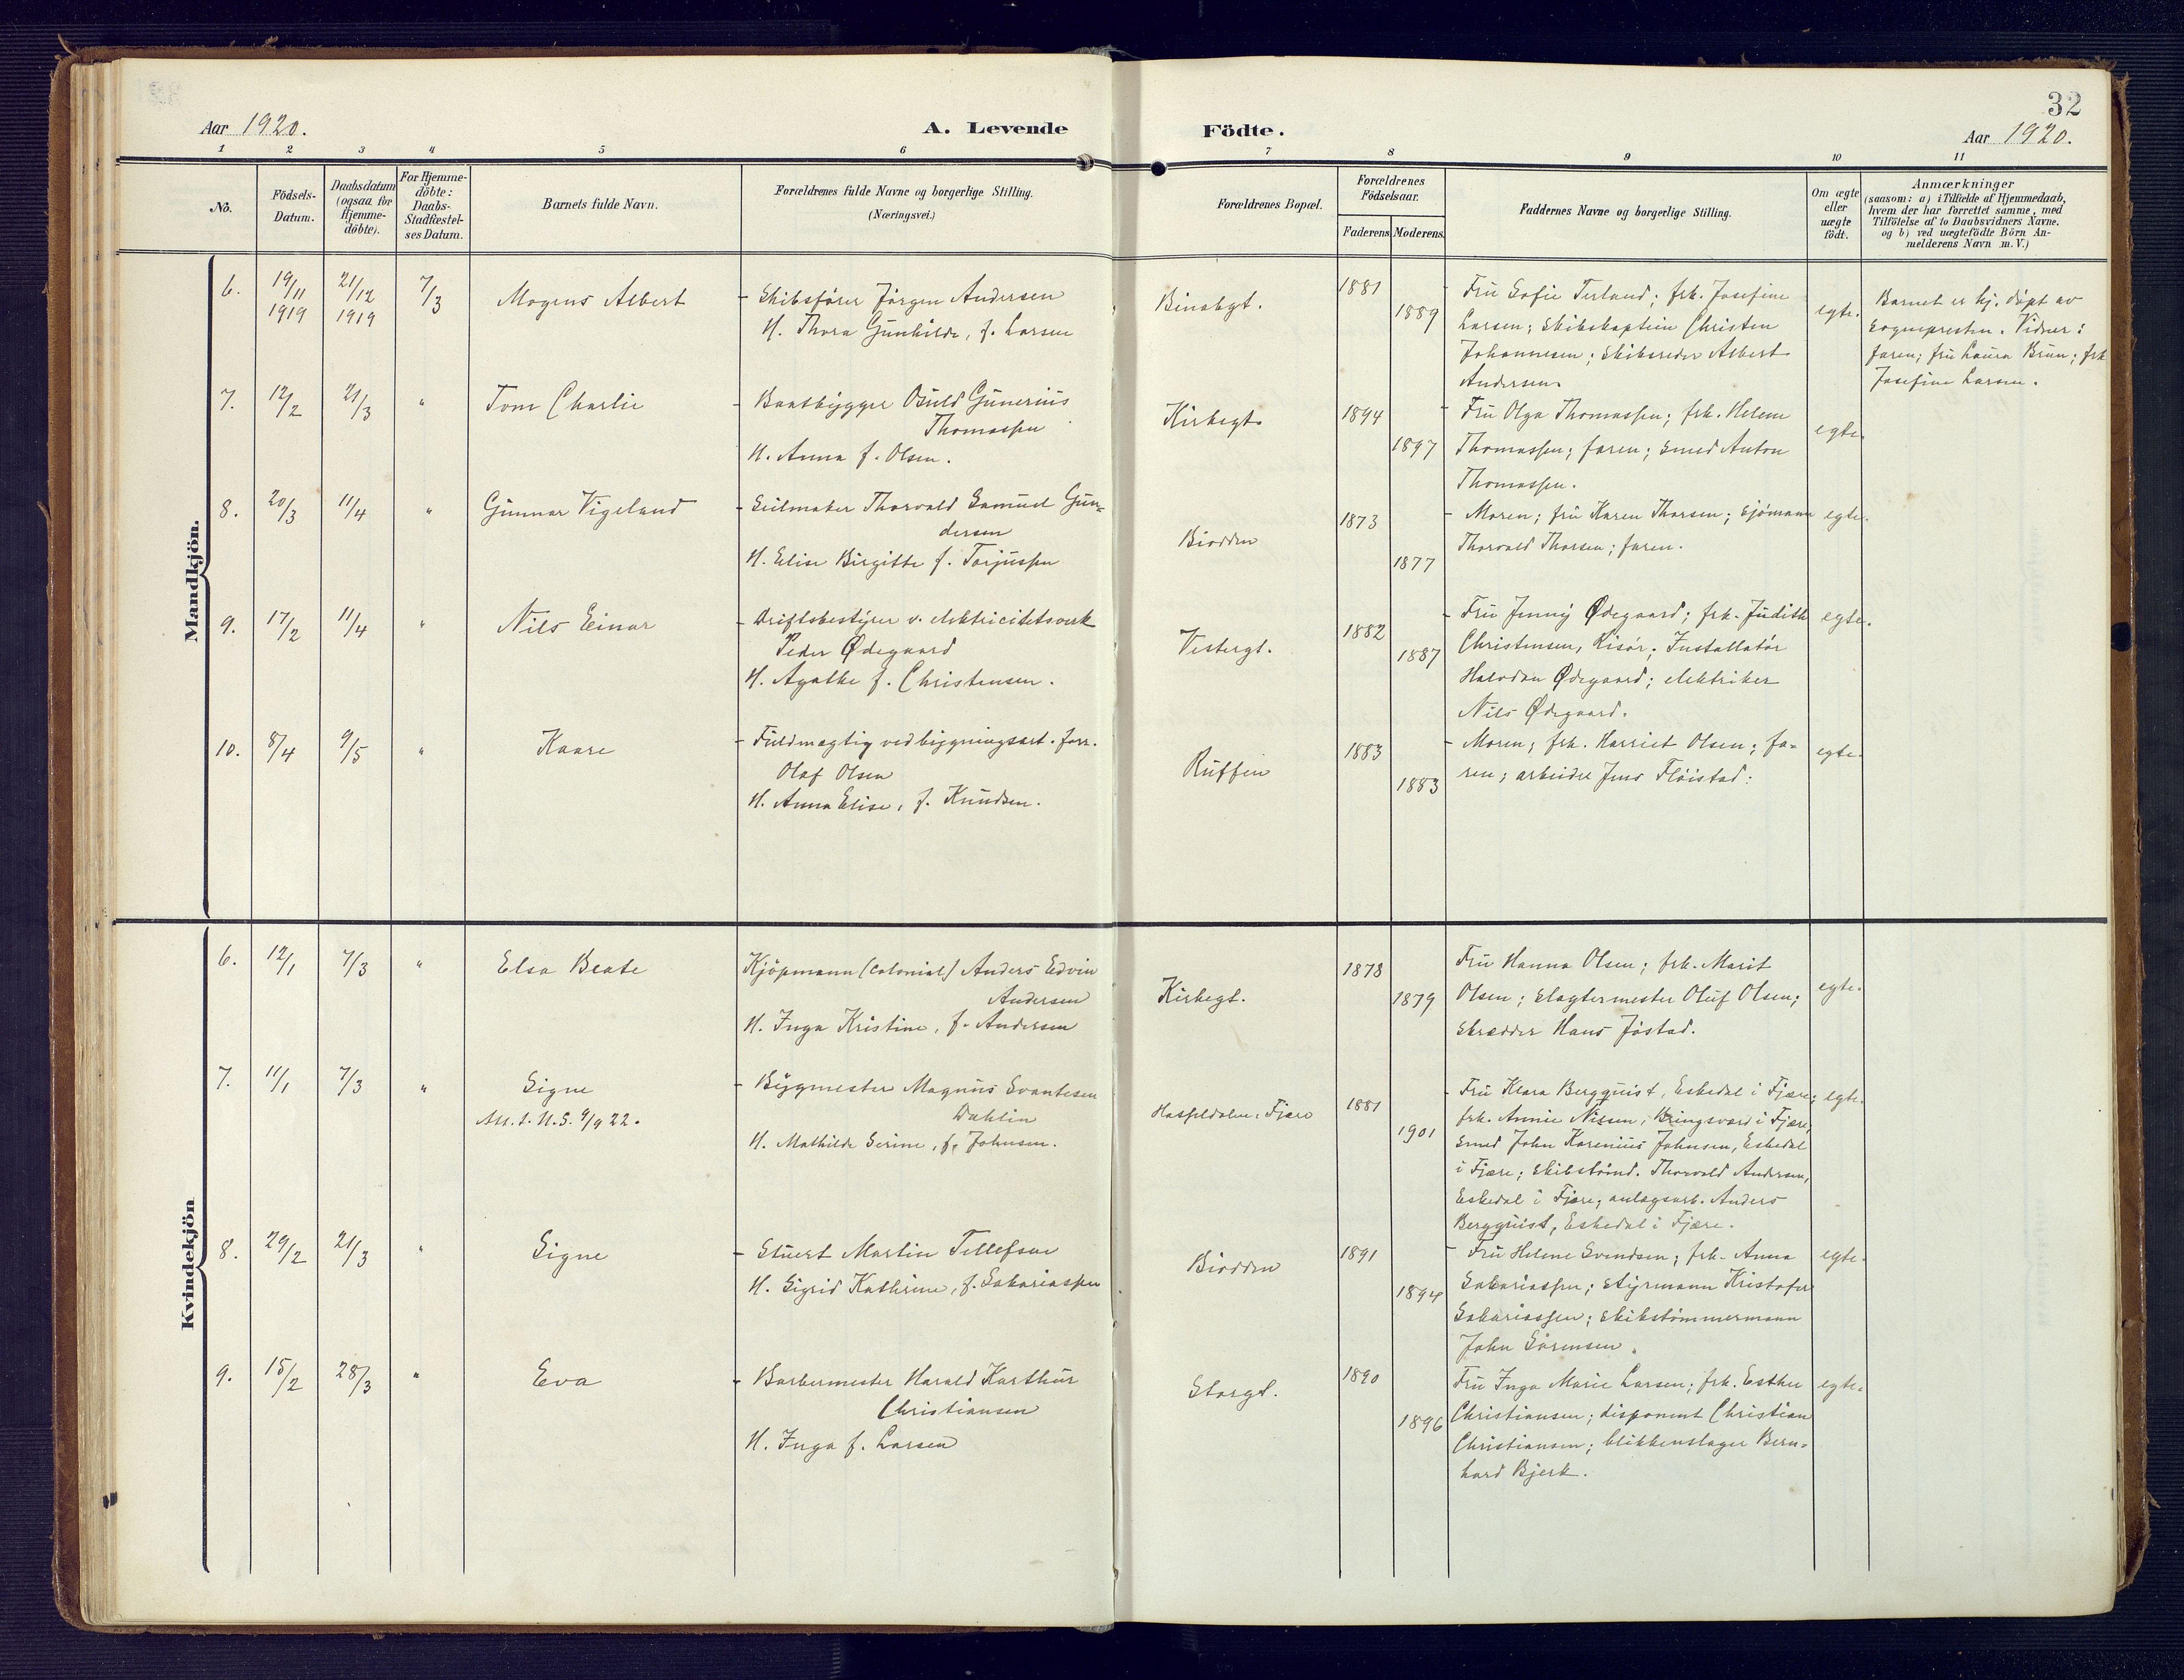 32
Aar 1920.
A. Levende Födte.
Aar 1920.
1 2 3 4 5 6 7 8 9 10 11
No.
Födsels-Datum.
Daabsdatum (ogsaa for Hjemme-döbte).
For Hjemme-döbte: Daabs-Stadfæstel-ses Datum.
Barnets fulde Navn.
Forældrenes fulde Navne og borgerlige Stilling.
(Næringsvei.)
Forældrenes Bopæl.
Forældrenes Födselsaar.
Faderens Moderens.
Faddernes Navne og borgerlige Stilling.
Om ægte eller uægte födt.
Anmærkninger
(saasom: a) i Tilfælde af Hjemmedaab,
hvem der har forrettet samme, med
Tilföielse af to Daabsvidners Navne.
og b) ved uægtefödte Börn An-
melderens Navn m.V.)
Mandkjön.
6. 19/11 1919 21/12 1919 7/3 Mogens Albert
- Skibsfører Jørgen Andersen
H. Thora Gunhilde, f. Larsen
Binabgt.
1881 1889
- Fru Sofie Terland; frk. Josefine
Larsen; Skibskaptein Christen
Johannesen; Skibsreder Albert
Andersen.
egte.
Barnet er hj. døpt av
sognepresten. Vidner:
faren; fru Laura Brun; frk
Josefine Larsen.
7. 12/2 21/3 " Tom Charlie
- Baatbygger Buld Gunerius
Thomassen
H. Anna f. Olsen.
Kirkegt.
1894 1897
- Fru Olga Thomassen; frk. Helene
Thomassen; faren; smed Anton
Thomassen.
egte.
8. 20/3 11/4 " Gunnar Vigeland
- Seilmaker Thorvald Samuel Gun-
dersen
H. Elise Birgitte f. Torjussen
Biodden
1873 1877
- Moren; fru Karen Thorsen; sjømann
Thorvald Thorsen; faren.
egte.
9. 17/2 11/4 " Nils Einar
- Driftsbestyrer v. elektricitetsverk
Peder Ødegaard
H. Agathe f. Christensen.
Vestergt.
1882 1887
- Fru Jenny Ødegaard; frk. Judith
Christensen, Risør; Installatør
Halvdan Ødegaard; elektriker
Nils Ødegaard.
egte.
10. 8/4 9/5 " Kaare
- Fuldmægtig ved bygningsart. forr.
Olaf Olsen
H. Anna Elise, f. Knudsen.
Ruffen
1883 1883
- Moren; frk. Harriet Olsen; fa-
ren; arbeider Jens Fløistad.
egte.
Kvindekjön
6. 12/1 7/3 " Elsa Beate
Kjøpmann (colonial) Anders Edvin
Andersen
H. Inga Kristine, f. Andersen
Kirkegt.
1878 1879
Fru Hanna Olsen; frk. Marit
Olsen; slagtermester Oluf Olsen;
skrædder Hans Jøstad.
egte.
7. 11/1 7/3 " Signe
Att. t. N.S. 9/9 22.
- Bygmester Magnus Svantesen
Dahlin
H. Mathilde Serine, f. Johnsen.
Hasseldalen i Fjære
1881 1901
- Fru Klara Bergquist, Eskedal i Fjære;
frk. Annie Nissen, Bringsværd i Fjære;
smed John Karenius Johnsen, Eskedal
i Fjære; skibstømd. Thorvald Andersen,
Eskedal i Fjære; anlægsarb. Anders
Bergquist, Eskedal i Fjære.
egte.
8. 29/2 21/3 " Signe
- Stuert Martin Tellefsen
H. Sigrid Kathrine, f. Sakariassen
Biodden
1891 1894
- Fru Helene Svendsen; frk. Anna
Sakariassen; Styrmann Kristofer
Sakariassen; skibstømmermann
John Sørensen.
egte.
9. 15/2 28/3 " Eva
- Barbermester Harald Karthur
Christiansen
H. Inga f. Larsen
Storgt.
1890 1896
Fru Inga Marie Larsen; frk. Esther
Christiansen; disponent Christian
Christiansen; blikkenslager Bern-
hard Bjerk.
egte.